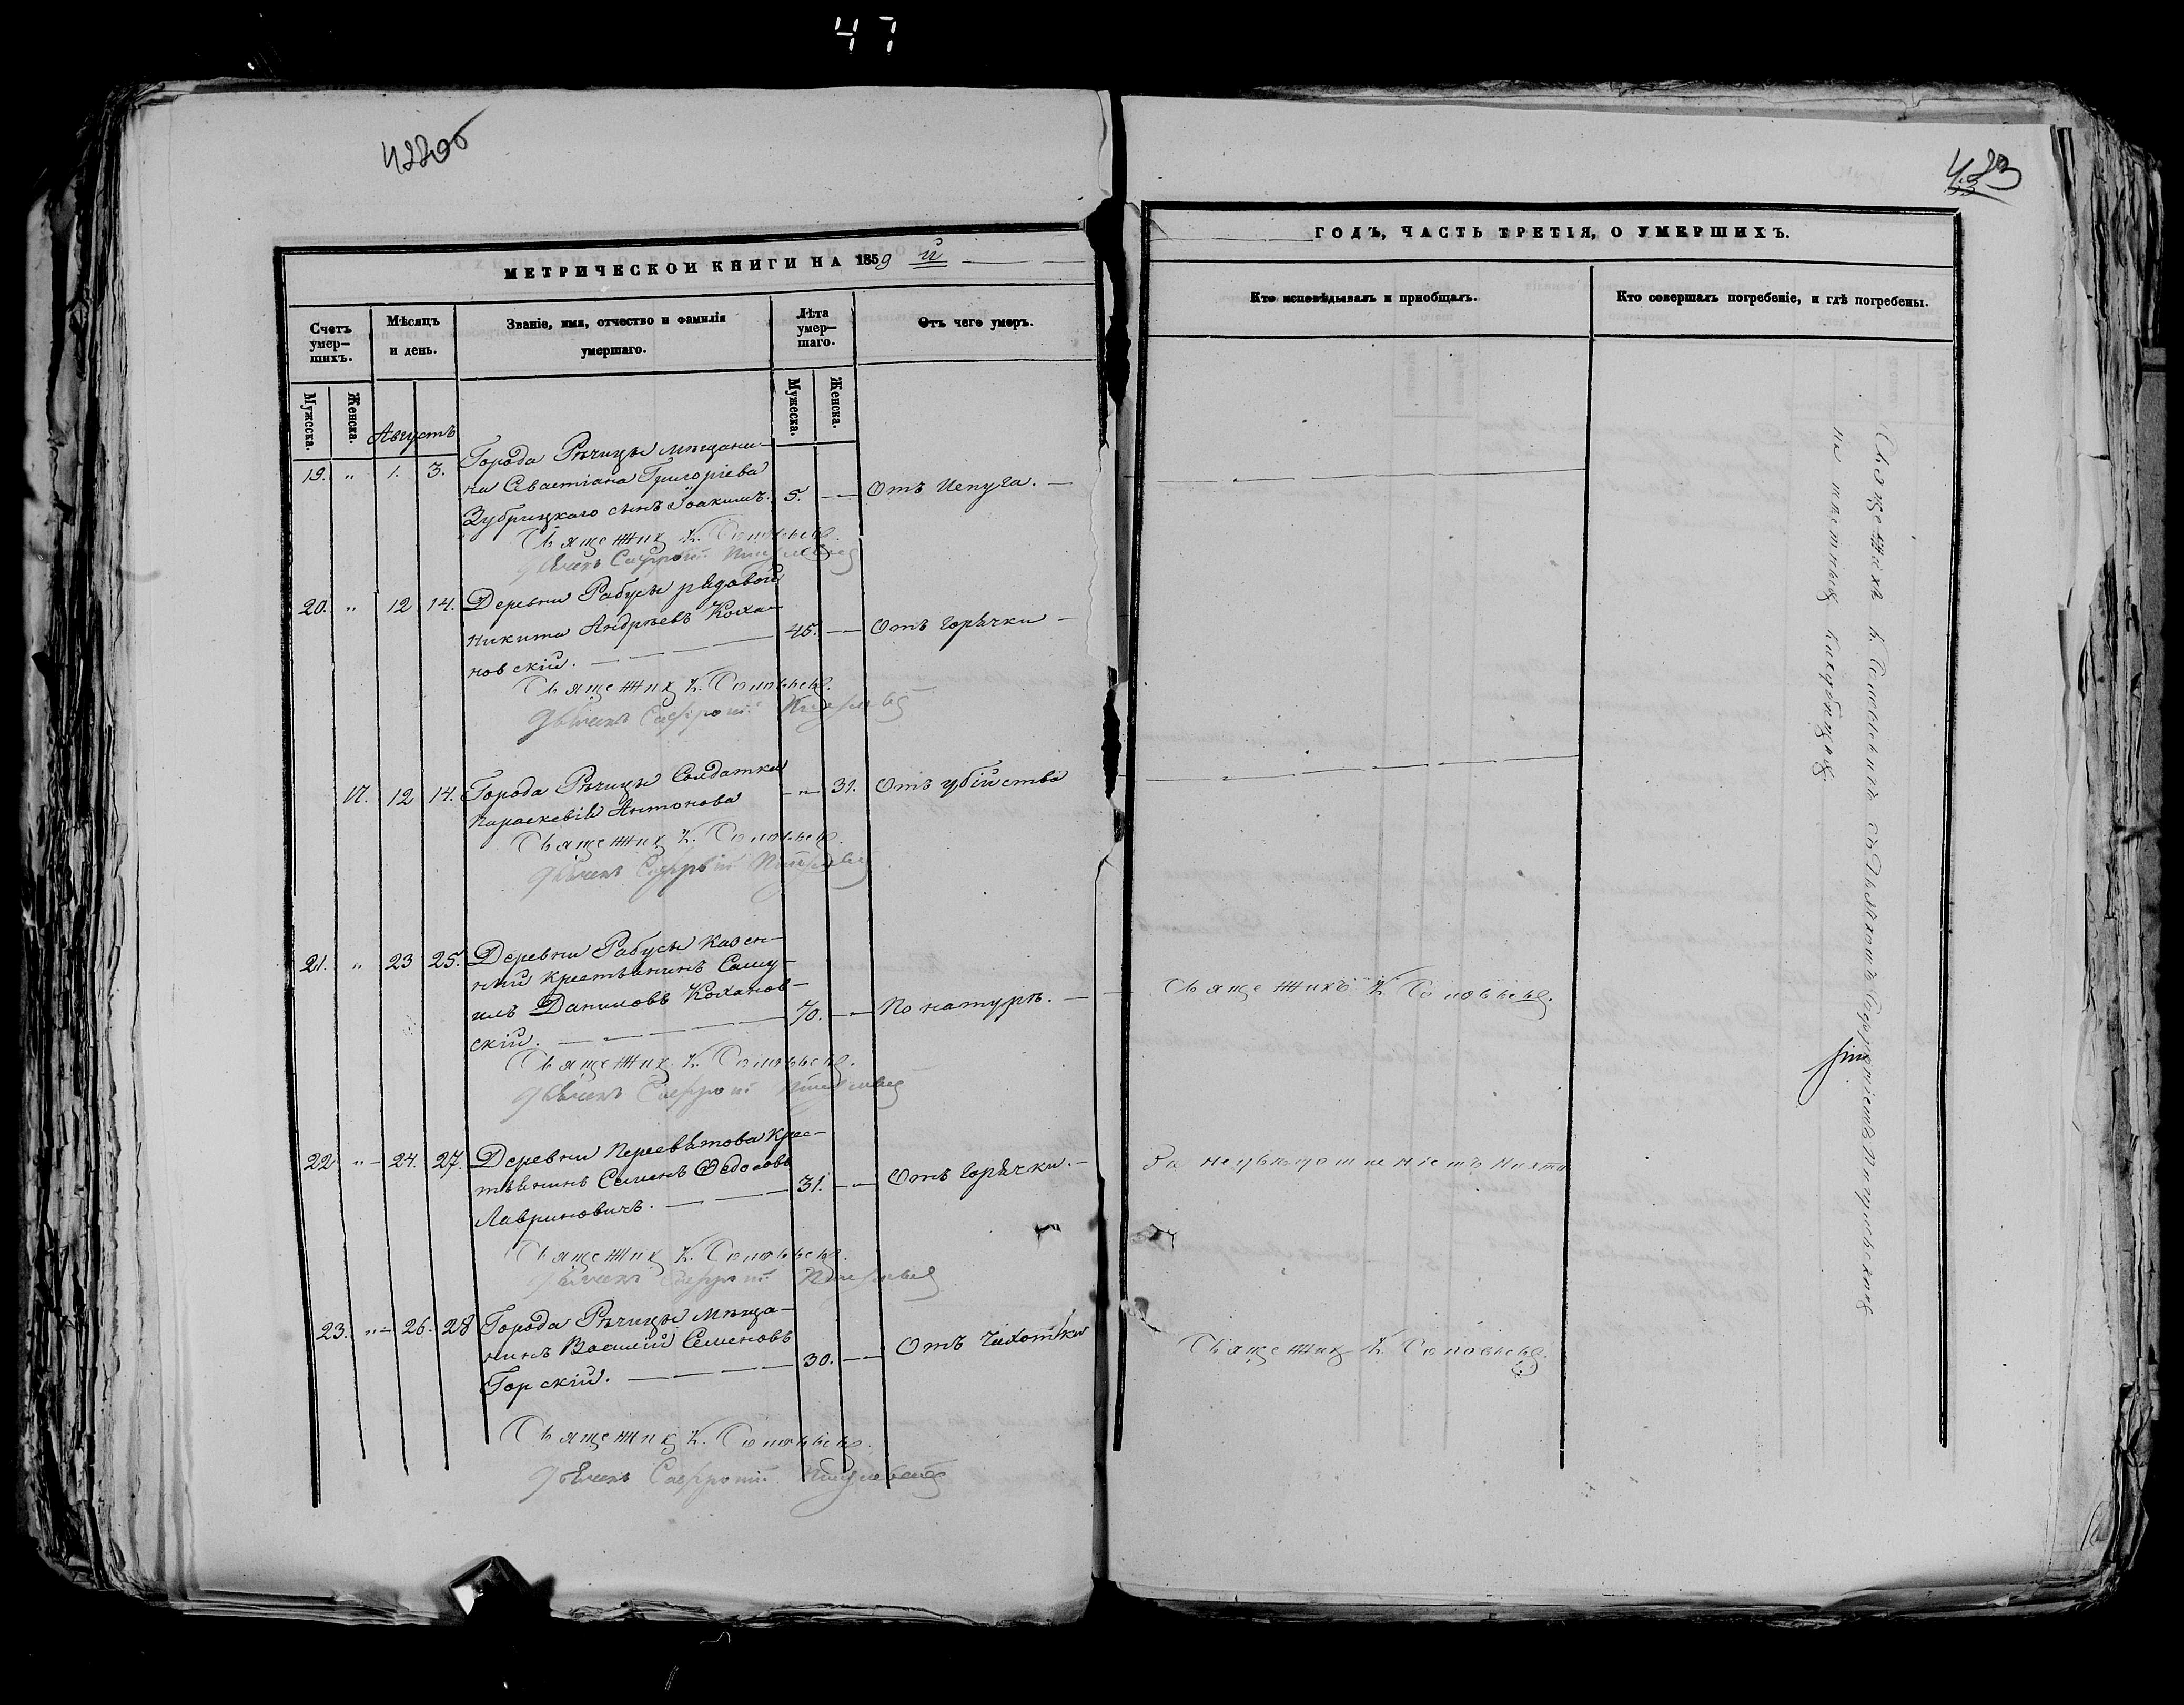 47
422об
423
МЕТРИЧЕСКОЙ КНИГИ НА 1859 й
ГОДЪ, ЧАСТЬ ТРЕТІЯ, О УМЕРШИХЪ.
Счетъ умер-
шихъ.
Мѣсяцъ
и день.
Званіе, имя, отчество и фамилія
умершаго.
Лѣта
умер-
шаго.
Отъ чего умеръ.
Кто исповѣдывалъ и приобщалъ.
Кто совершалъ погребеніе, и гдѣ погребены.
Мужеска.
Женска.
Мужеска.
Женска.
Августъ
19. " 1. 3. Города Рѣчицы мѣщани-
на Севастіана Григоріева
Зубрицкаго сынъ Іоакимъ. 5. — Отъ Испуга. —
Священникъ К. Соловьевъ.
Дьячекъ Софроній
20. " 12 14. Деревни Рабусы рядовой
Никита Андреевъ Коха-
новскій. — 45. — Отъ горячки —
Священникъ К. Соловьевъ.
Дьячекъ Софроній
17. 12 14. Города Рѣчицы Солдатка
Параскевія Антонова — " — 31. Отъ убійства
Священникъ К. Соловьевъ.
Дьячекъ Софроній
21. " 23 25. Деревни Рабусы казен-
ный крестьянинъ Саму-
илъ Даниловъ Коханов-
скій. — 70. — По натурѣ. — Священникъ К. Соловьевъ.
Священникъ К. Соловьевъ.
Дьячекъ Софроній
22 " 24. 27. Деревни Пересвѣтова крес-
тьянинъ Семенъ Федосовъ
Лавриновичъ. — 31. — Отъ горячки. —
Священникъ К. Соловьевъ.
Дьячекъ Софроній
23. " 26. 28 Города Рѣчицы мѣща-
нинъ Василій Семеновъ
Горскій. — 30. — Отъ чахотки Священникъ К. Соловьевъ.
Священникъ К. Соловьевъ.
Дьячекъ Софроній
Священникъ К. Соловьевъ съ Дьячкомъ Софроніемъ
на кладбищѣ.